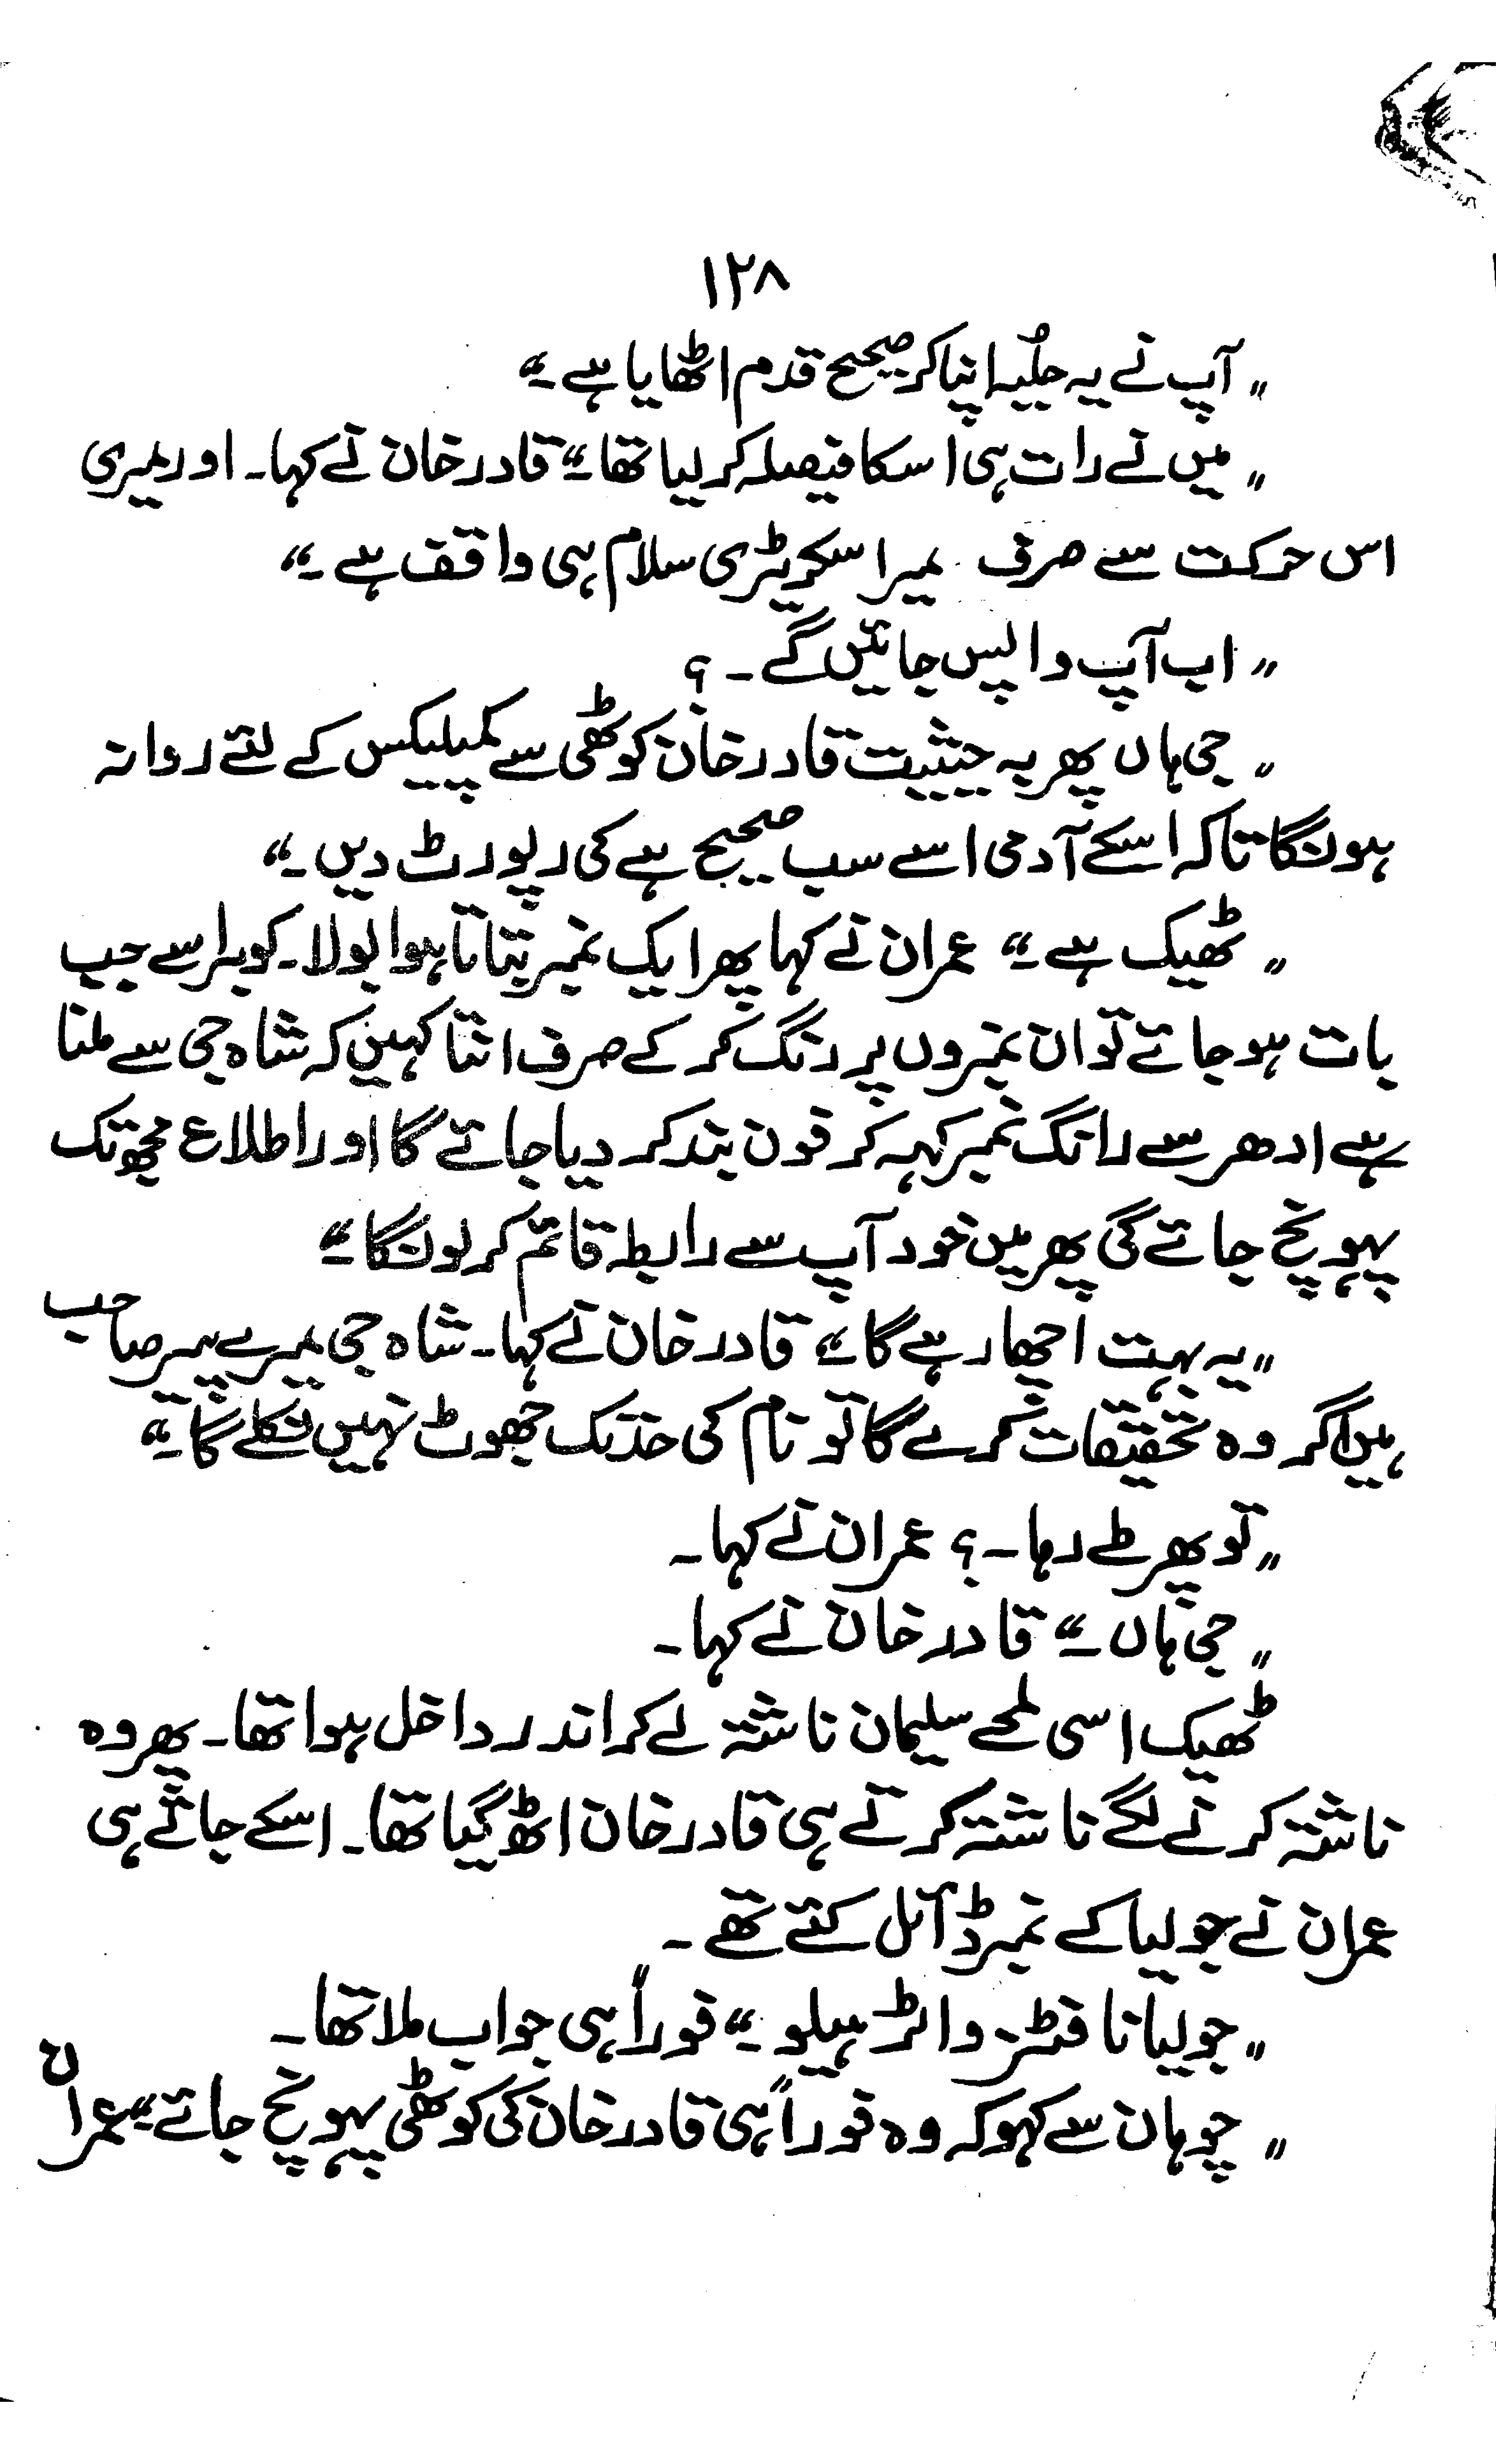 ۱۲۸
”آپ نے یہ حلُیہ اپنا کر صحیح قدم اٹھایا ہے۔“
”میں نے رات ہی اسکا فیصلہ کر لیا تھا۔“ قادر خان نے کہا۔ اور میری
اس حرکت سے صرف میرا سکریٹری سلام ہی واقف ہے۔“
”اب آپ واپس جائیں گے۔؟
”جی ہاں پھر بہ حیثیت قادر خان کوٹھی سے کمپلیکس کے لئے روانہ
ہونگا تاکہ اسکے آدمی اسے سب صحیح ہے کی رپورٹ دیں۔“
”ٹھیک ہے۔“ عمران نے کہا پھر ایک نمبر بتاتا ہوا بولا۔ کوبرا سے جب
بات ہو جائے تو ان نمبروں پر رنگ کر کے صرف اتنا کہیں کہ شاہ جی سے ملنا
ہے ادھر سے رانگ نمبر کہہ کر فون بند کر دیا جائے گا اور اطلاع مجھ تک
پہونچ جائے گی پھر میں خود آپ سے رابطہ قائم کر لونگا۔“
”یہ بہت اچھا رہے گا۔“ قادر خان نے کہا۔ شاہ جی میرے پیر صاحب
ہیں اگر وہ تحقیقات کرے گا تو نام کی حد تک جھوٹ نہیں نکلے گا۔“
”تو پھر طے رہا۔؟ عمران نے کہا۔
”جی ہاں۔“ قادر خان نے کہا۔
ٹھیک اسی لمحے سلیمان ناشتہ لے کر اندر داخل ہوا تھا۔ پھر وہ
ناشتہ کرنے لگے ناشتہ کرتے ہی قادر خان اٹھ گیا تھا۔ اسکے جاتے ہی
عمران نے جولیا کے نمبر ڈائل کئے تھے۔
”جولیانا فٹز واٹر ہیلو۔“ فوراً ہی جواب ملا تھا۔
”چوہان سے کہو کہ وہ فوراً ہی قادر خان کی کوٹھی پہونچ جائے۔“ عمران